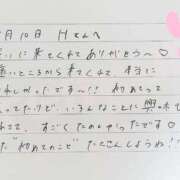 月10日 Hさんへ
いに来てくれてありがとう〜♡
遠いところから来てくれて、本当に
れしかったです〜!! 初めてって
ってたけど、いろんなことに興味
れて、すごくたのしかったです♡
た"初めてのこと"たくさんしようね!